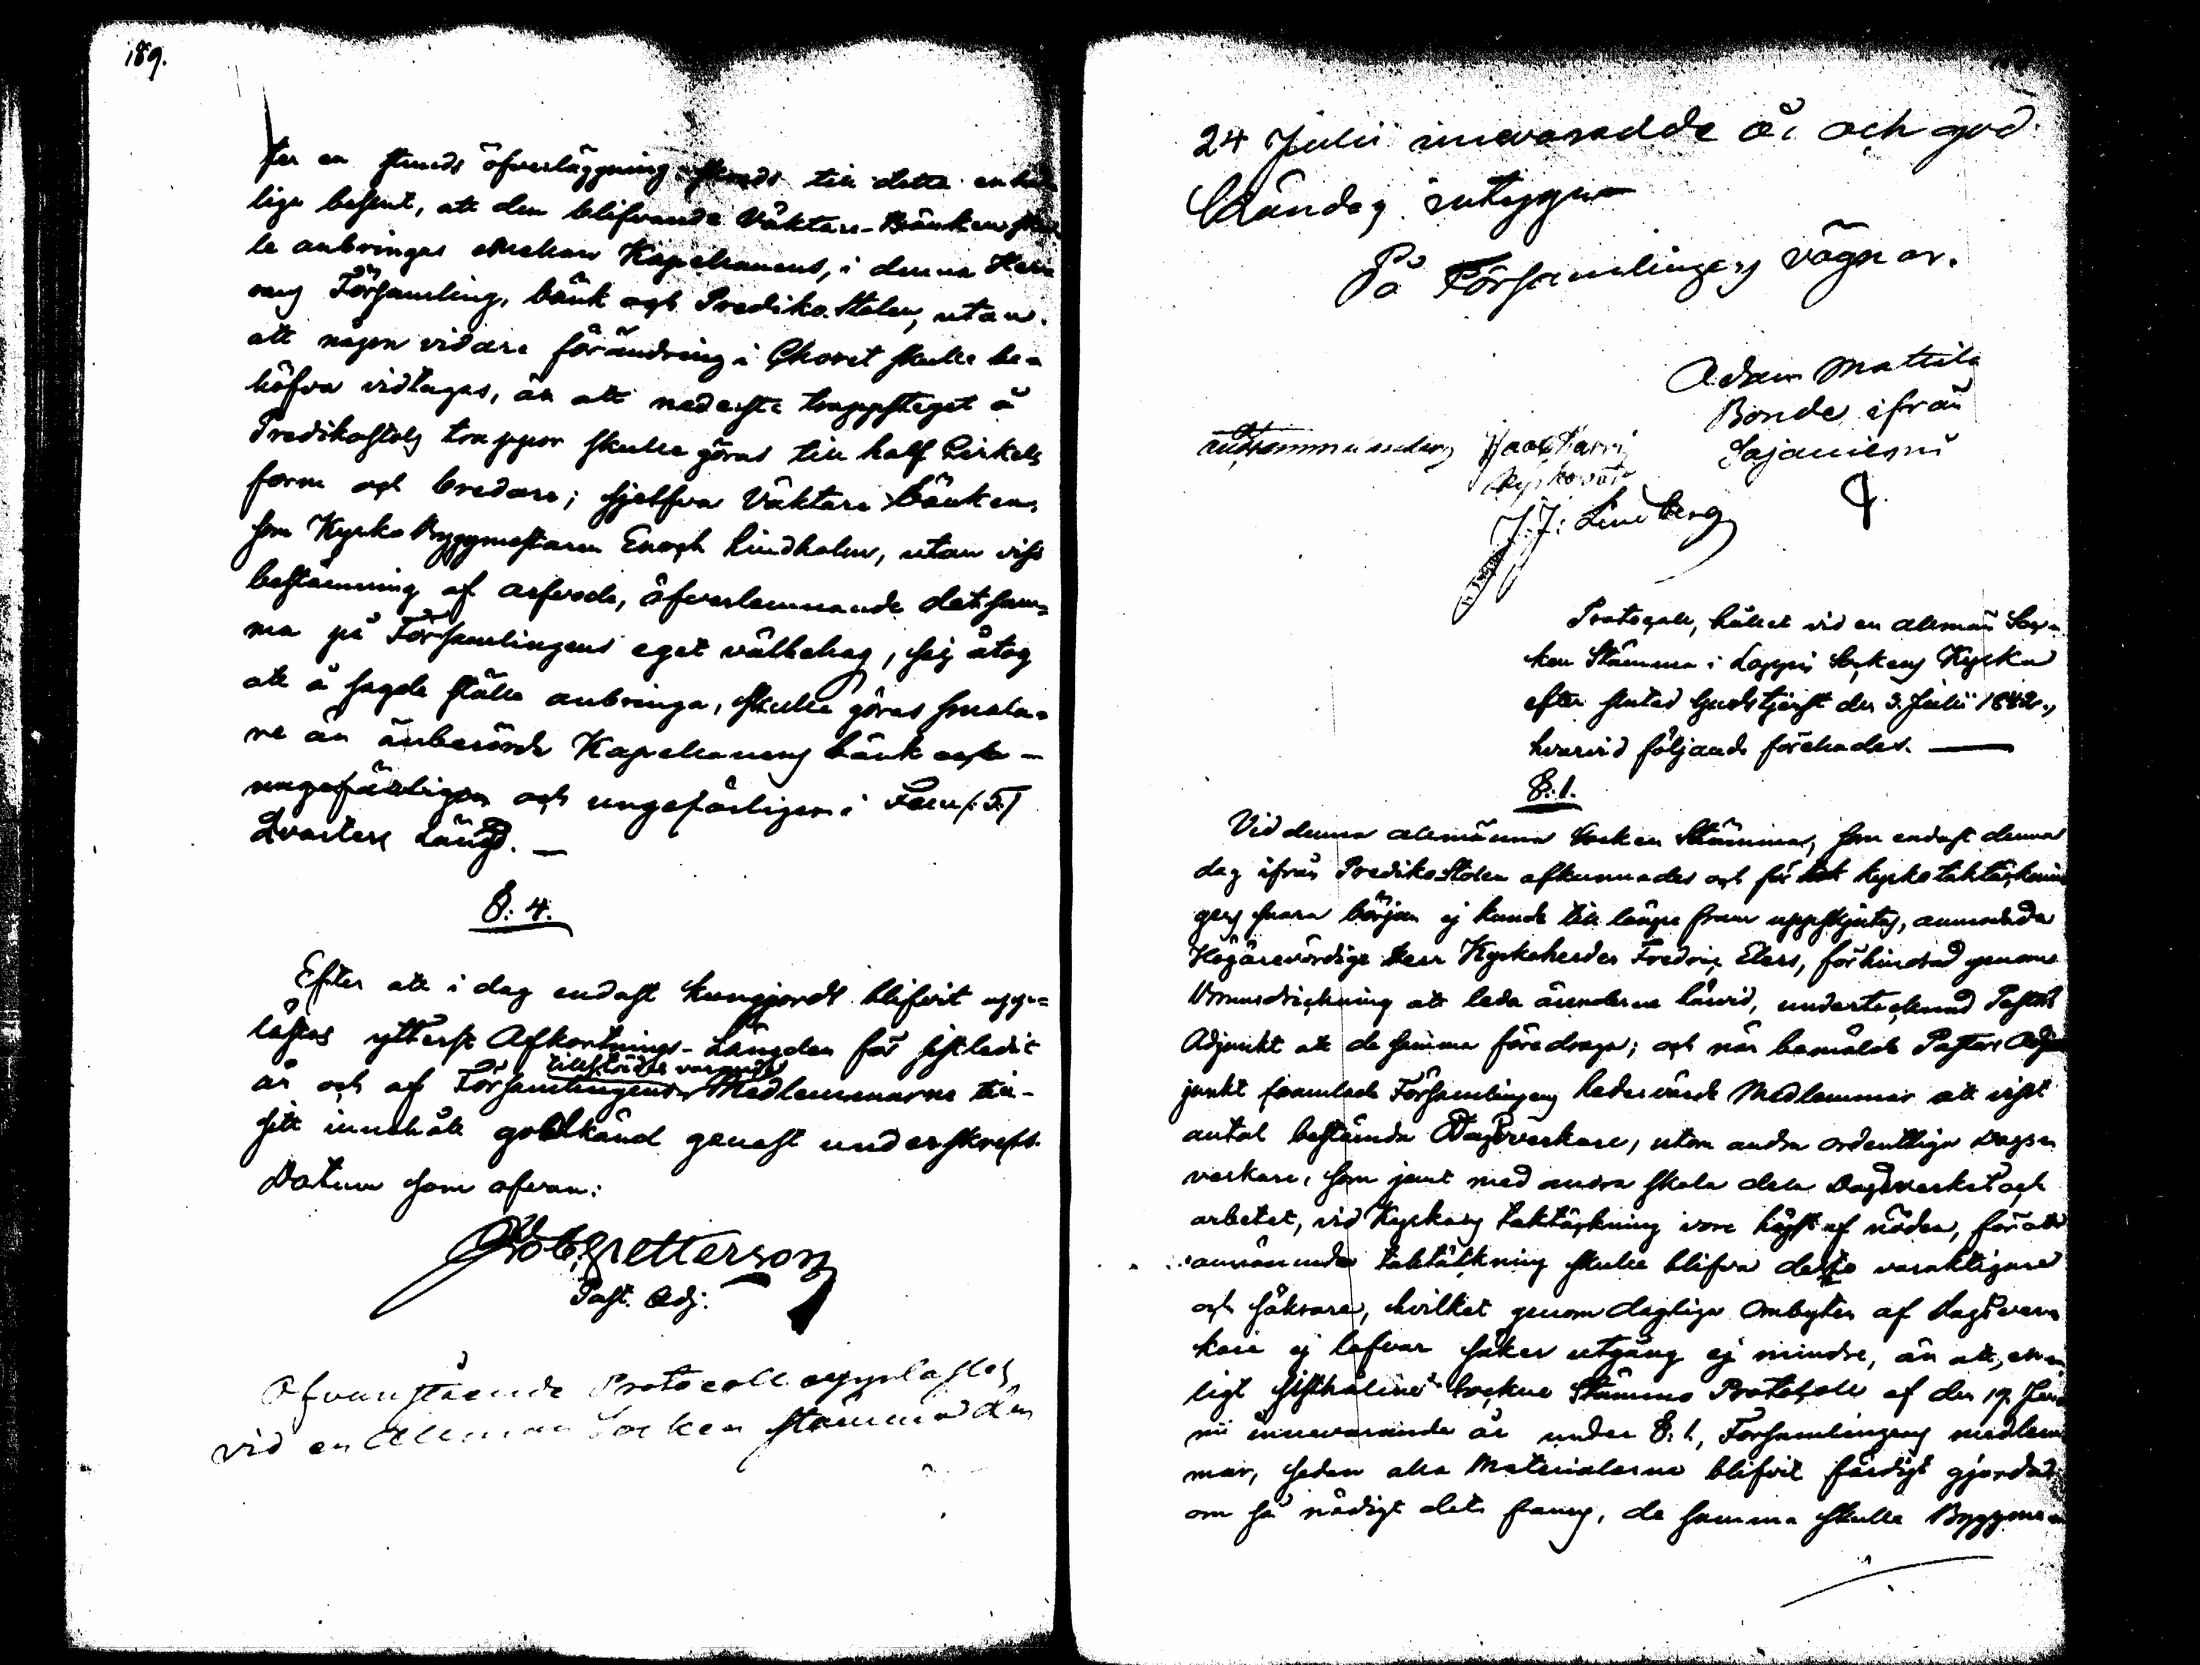 189.
ter en stunds öfverläggning skreds till detta en
lige beslut, att den blifvande Väktare-Bänken skul
le anbringas mellan Kapellanens, i denna Her
rans Församling, bänk och Prediko Stolen, utan
att någon vidare förändring i Choret skulle be=
höfva vidtagas, än att nedersta trappsteget å
Predikostols trappor skulle göras till half Cirkels
form och bredare; sjelfva Väktare bänken,
som Kyrko Byggmestaren Enoch Lindholm, utan viss
bestämning af arfvode, öfverlemnande detsam=
ma på Församlingens eget välbehag, sig åtog
att å sagde ställe anbringa, skulle göras smala=
re än änberörde Kapellanens bänk
ungefärligen och ungefärligen i Fem /:5:/
Qvarters Längd. —
§: 4.
Efter att i dag endast kungjordt blifvit upp=
lästes ytterst Afkortnings-Längden för sistledit
tillstädes varande
år och af Församlingens Medlemmarne till
sitt innehåll godkänd genast underskrefs.
Datum som ofvan:
Petterson
Past. Adj.
Ofvanstående Protocoll upplästes
vid en Allmän Socken stämma den
24 Julii innevaradde år och god
kändes intygna
På Församlingens vägnar.
Adam Mattila
Bonde ifrån
Sajaniemi
Jaak Harri
Kyrkovärd
J. J: Lindberg
Protocoll, hållet vid en allmän Soc=
ken Stämma i Loppis Sockens Kyrka
efter slutad Gudstjenst den 3. Julii 1842.,
hvarvid följande förehades. —
§: 1.
Vid denna allmänna Socken Stämma, som endast denna
dag ifrån Predikostolen afkunnades och för kyrko taktäcknin
gens snara början ej kunde till längre fram uppskjutas, anmodade
Högärevördige Herr Kyrkoherden Fredric Elers, förhindrad genom
Brunnsdrickning att leda ärenderne härvid, undertecknad Pastors
Adjunkt att de samma föredraga; och när bemälde Pastors Ad
junkt framlade Församlingens hedervärde Medlemmar att visst
antal bestämda Dagsverkare, utom andra ordentliga Dags=
verkare, som jemt med andra skola dela Dagsverket och
arbetet, vid Kyrkans taktäckning vore högst af nöden, för att
omnämnde taktäckning skulle blifva desto varaktigare
och säkrare, hvilket genom dagliga ombyten af Dagsver=
kare ej lofvar säker utgång ej mindre, än att, en=
ligt sisthållne Sockne Stämmo Protokoll af den 19. Ju
nii innevarande år under §: 1., Församlingens medlem
mar, sedan alla Materialerne blifvit färdigt gjorda
om så nödigt det fanns, de samma skulle Byggme